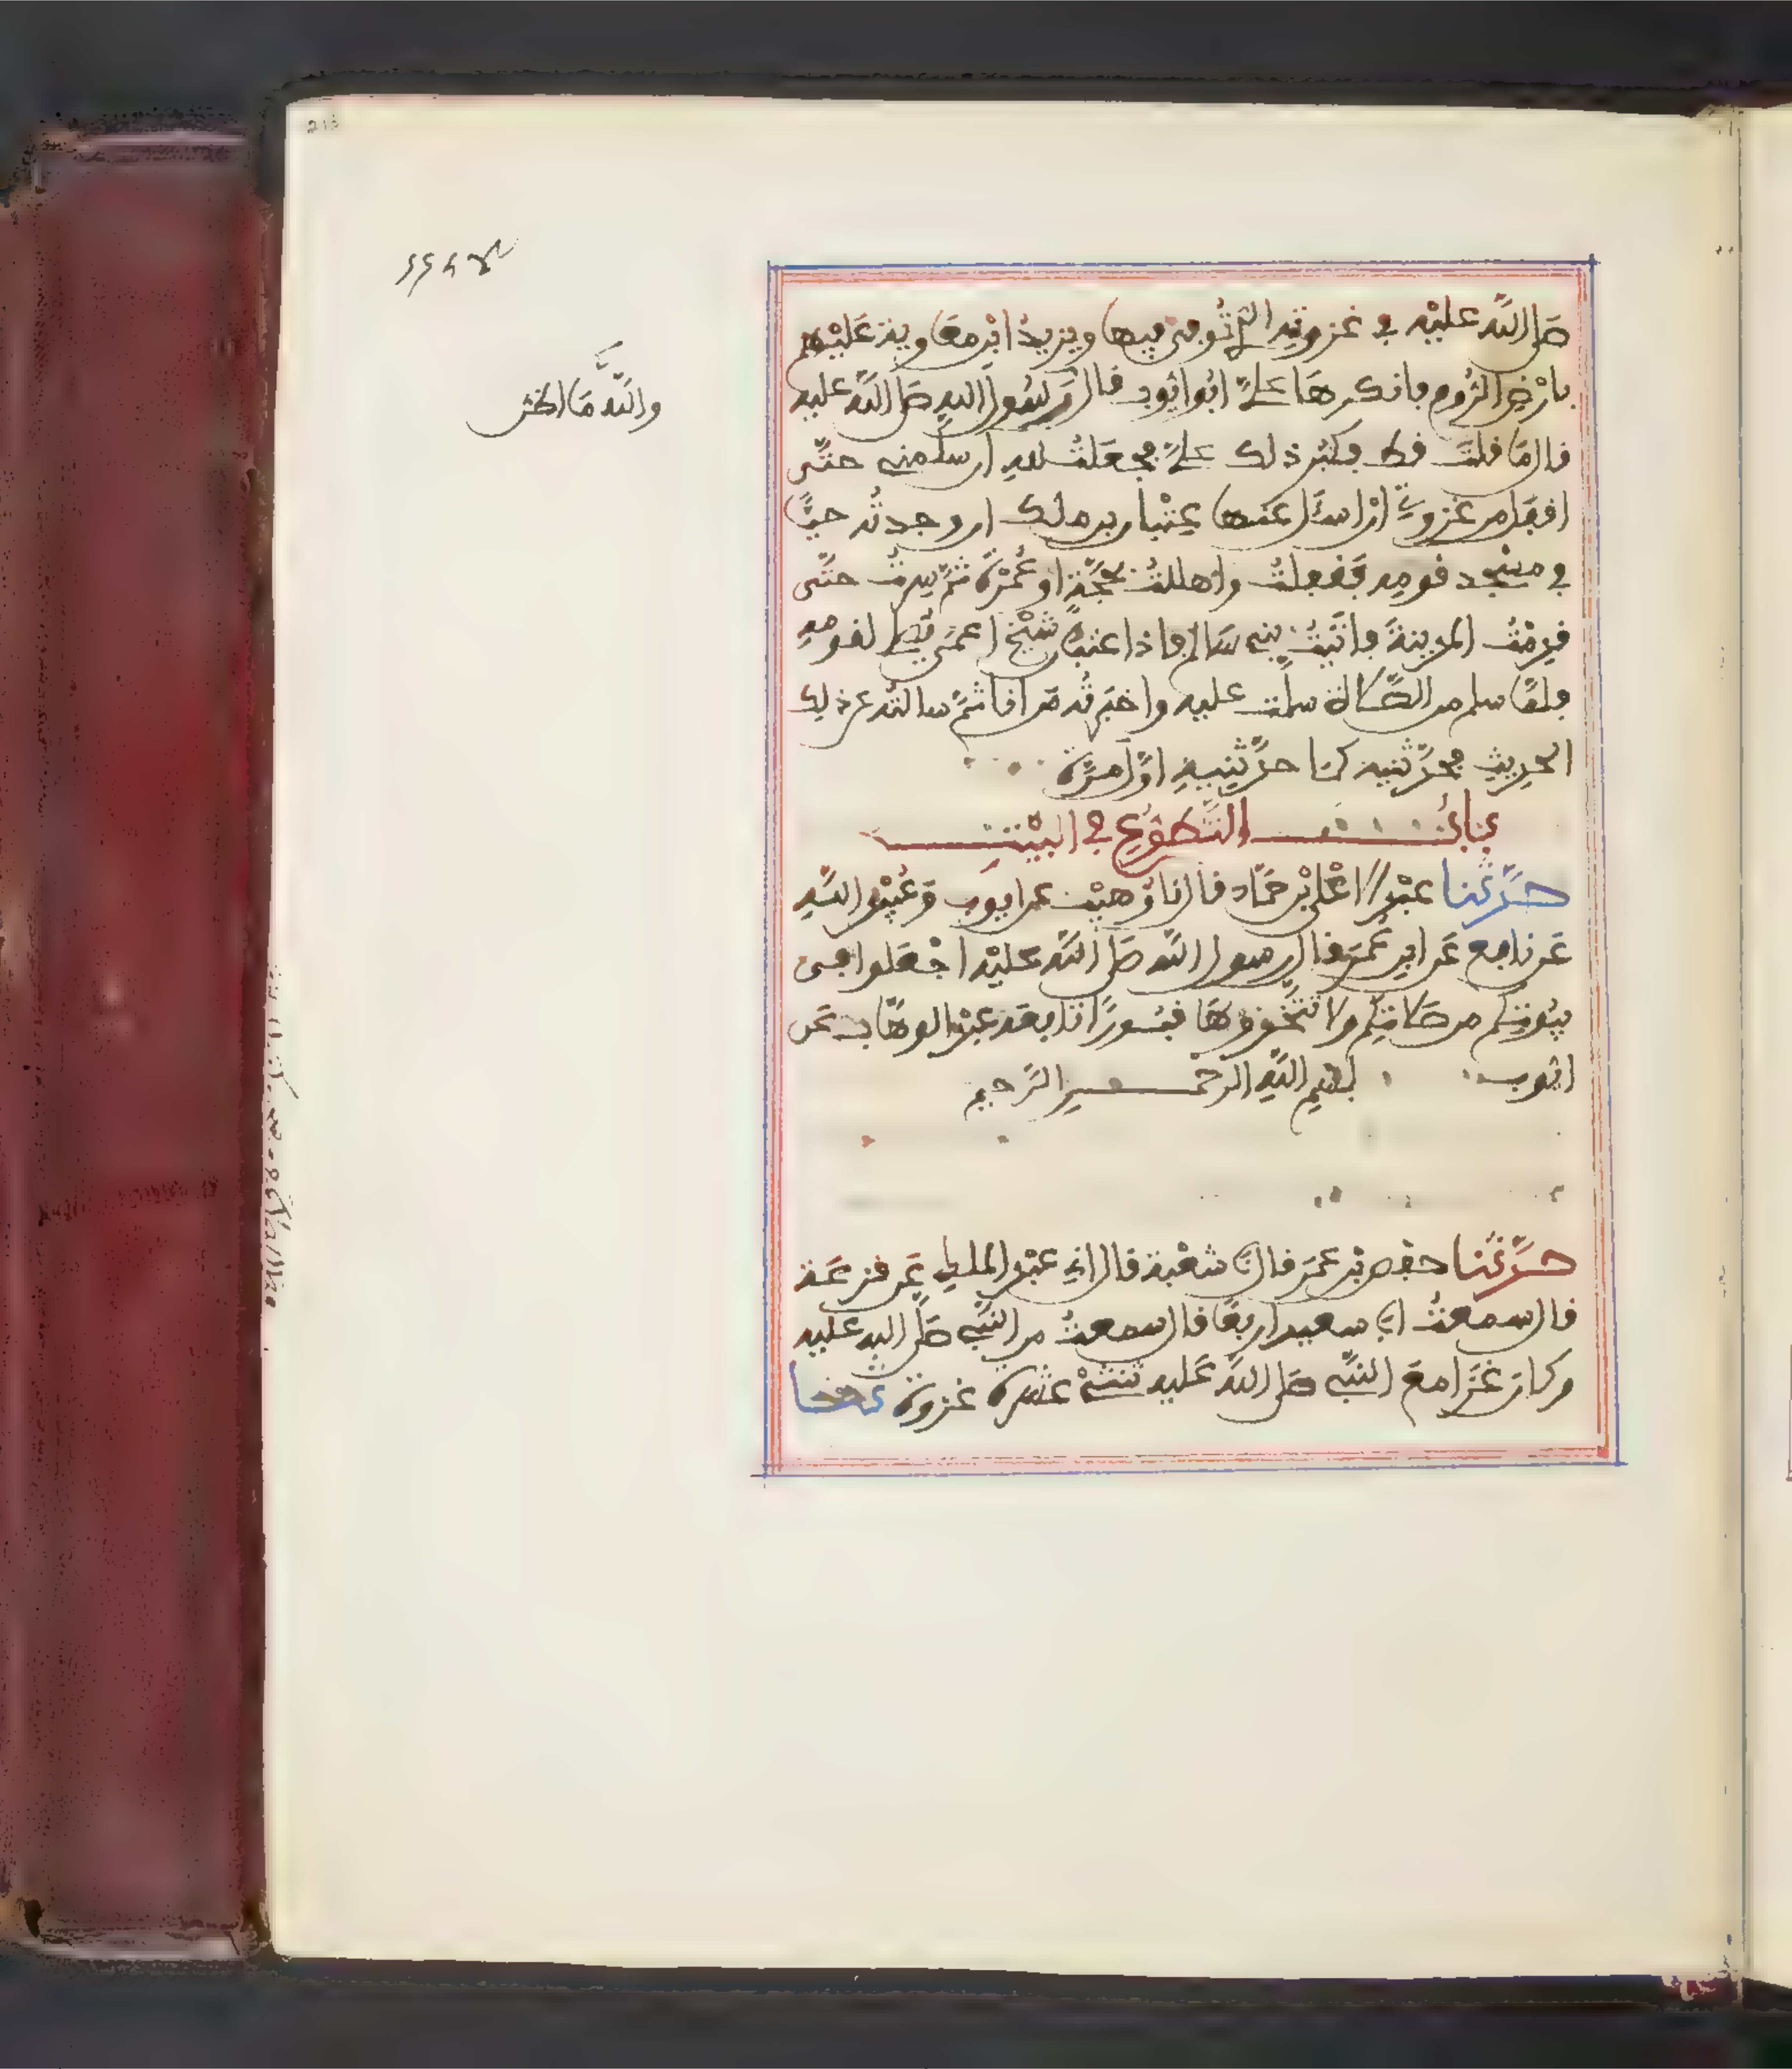 صَلى اللَّه عليْه في غزوتِه التي تُوفي فيها ويزيدُ ابْن معَاوية عَليْهم
بأرْضِ الرُّوم فأنكرهَا عليَّ ابُو ايُّوب فقال رَسُول اللهِ صَلى اللَّه عليه
قال مَا قلتَ قط فكبُر ذلك عليَّ فجعَلتُ للهِ ان سلَّمني حتَّى
اقفل من غزوتي أن اسئَل عَنها عِتْبان بن ملك ان وجدتُه حيًّا
في مسْجد قومِه فقفلتُ واهللتُ بحجَّة او عُمرَة ثمَّ سِرتُ حتَّى
قدِمْتُ المدينةَ فاتَيتُ بني سَالم فاذا عتبانُ شيْخ اعمَى يصلي لقومهِ
فلمَّا سلم من الصَّلاة سلمت عليه واخبَرتُه مَن انا ثمَّ سالتُه عن ذلك
الحدِيثِ فحدَّثنيه كمَا حدَّثنيهِ اوَّل مرَّة
بَابُ التَّطوُّعِ في البيْتِ
حدَّثنا عبْد الاعْلى بْن حَمَّاد قال نا وُهيْب عن ايوب وَعُبيْد اللَّهِ
عَن نافع عَن ابن عُمَر قال رسول اللَّه صَلى اللَّه عَليْه اجْعَلوا في
بيُوتكم من صَلاتِكم ولا تتَّخذوهَا قبُورًا تابعَه عبْد الوهَّاب عَن
ايُّوب بسْمِ اللَّهِ الرحْمن الرَّحيم
حدَّثنا حفص بْن عمَر قال نا شعْبة قال اني عبْد الملك عَن قزعَة
قال سمعتُ ابا سعيد اربعًا قال سمعتُ من النَّبي صَلى الله عليه
وكان غَزَا معَ النَّبي صَلى اللَّه عَليه ثنتيْ عشرة غزوة
واللَّه مَا اظن